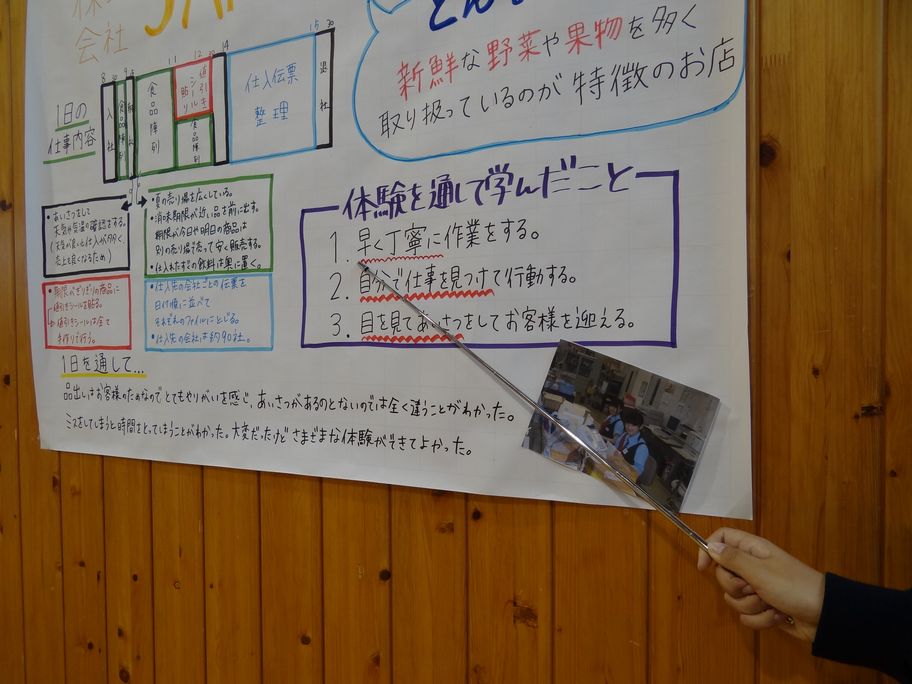 株
会社
新鮮な野菜や果物を多く
取り扱っているのが特徴のお店
1日の
仕事内容
8
9
11
12
14
15
入社
食品陳列
食品陳列
値引きシール貼り
食品陳列
仕入伝票
整理
退社
・あいさつをして
天気や気温の確認をする。
(天気が良いと仕入が多く、
売上も良くなるため)
・夏の売り場を広くしている。
・消味期限が近い品を前に出す。
期限が今日や明日の商品は
別の売り場で売って安く販売する。
・仕入れたすぐの飲料は奥に置く。
・期限がぎりぎりの商品に
値引きシールを貼る。
値引きシールは全て
手作りで行う。
・仕入先の会社ごとの伝票を
日付順に並べて
それぞれのファイルにとじる。
・仕入先の会社は約90社。
体験を通して学んだこと
1. 早く丁寧に作業をする。
2. 自分で仕事を見つけて行動する。
3. 目を見てあいさつをしてお客様を迎える。
1日を通して…
品出しはお客様のためなのでとてもやりがいを感じ、あいさつがあるのとないのでは全く違うことがわかった。
ミスをしてしまうと時間をとってしまうことがわかった。大変だったけどさまざまな体験ができてよかった。